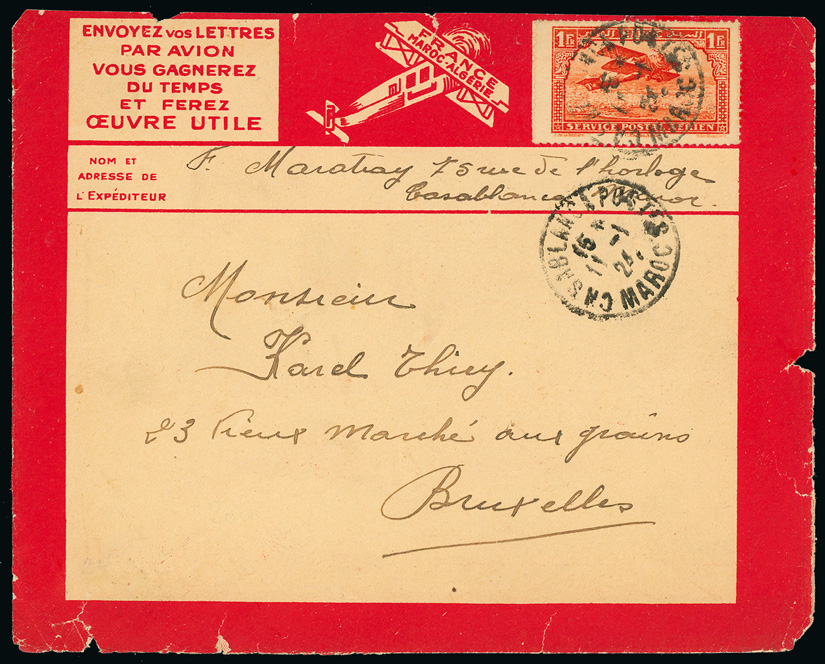 ENVOYEZ VOS LETTRES
PAR AVION
VOUS GAGNEREZ
DU TEMPS
ET FEREZ
ŒUVRE UTILE
FRANCE
MAROC-ALGÉRIE
1Fr 1Fr
SERVICE POSTAL AÉRIEN
NOM ET
ADRESSE DE
L'EXPÉDITEUR
F. Maratray 75 rue de l'horloge
Casablanca Maroc.
CASABLANCA POSTES
MAROC
Monsieur
Karel Thiery.
23 Vieux Marché aux grains
Bruxelles